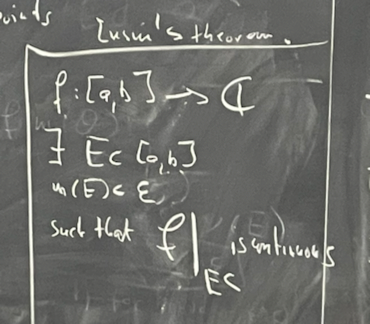 points
Lusin's theorem.
f : [a,b] → ℂ
∃ E ⊂ [a,b]
m(E) < ε
such that f|_{E^c} is continuous